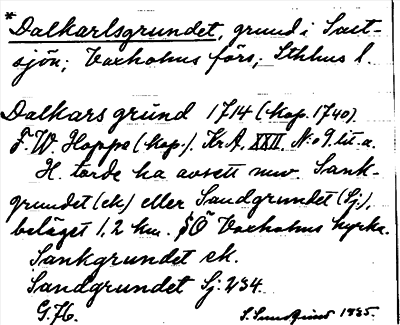 * Dalkarlsgrundet, grund i Salt-
sjön; Vaxholms förs., Sthlms l.
Dalkars grund 1714 (kop. 1740).
F. W. Hoppe (kop.). Kr A. XXII. N:o 9. lit. a.
H. torde ha avsett nuv. Sank-
grundet (ek) eller Sandgrundet (Sj.),
beläget 1,2 km. SÖ Vaxholms kyrka.
Sankgrundet ek.
Sandgrundet Sj. 234.
G. H. 1935.